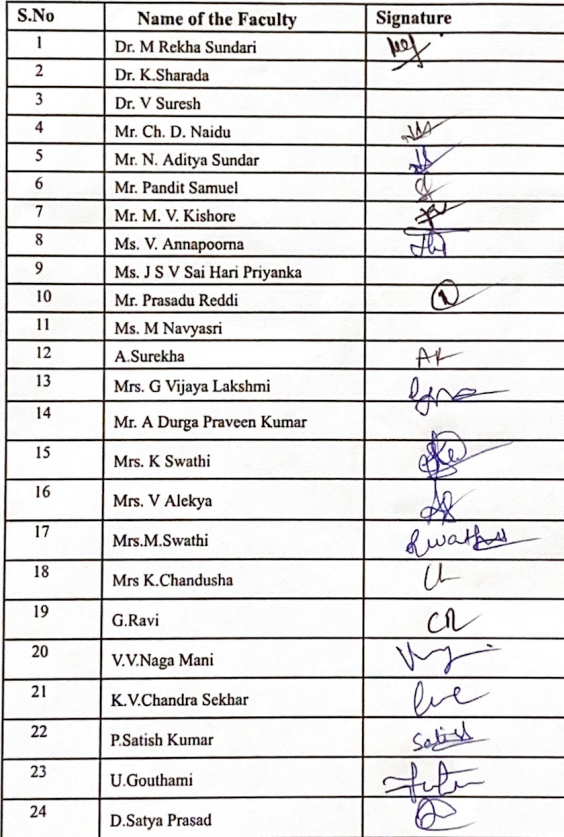 S.No Name of the Faculty Signature
1 Dr. M Rekha Sundari
2 Dr. K.Sharada
3 Dr. V Suresh
4 Mr. Ch. D. Naidu
5 Mr. N. Aditya Sundar
6 Mr. Pandit Samuel
7 Mr. M. V. Kishore
8 Ms. V. Annapoorna
9 Ms. J S V Sai Hari Priyanka
10 Mr. Prasadu Reddi
11 Ms. M Navyasri
12 A.Surekha
13 Mrs. G Vijaya Lakshmi
14 Mr. A Durga Praveen Kumar
15 Mrs. K Swathi
16 Mrs. V Alekya
17 Mrs.M.Swathi
18 Mrs K.Chandusha
19 G.Ravi
20 V.V.Naga Mani
21 K.V.Chandra Sekhar
22 P.Satish Kumar
23 U.Gouthami
24 D.Satya Prasad